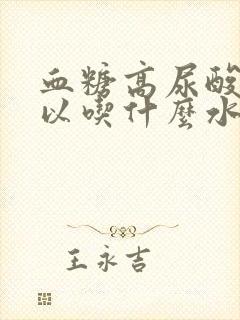 血糖高尿酸
以喫什麼水
王永吉